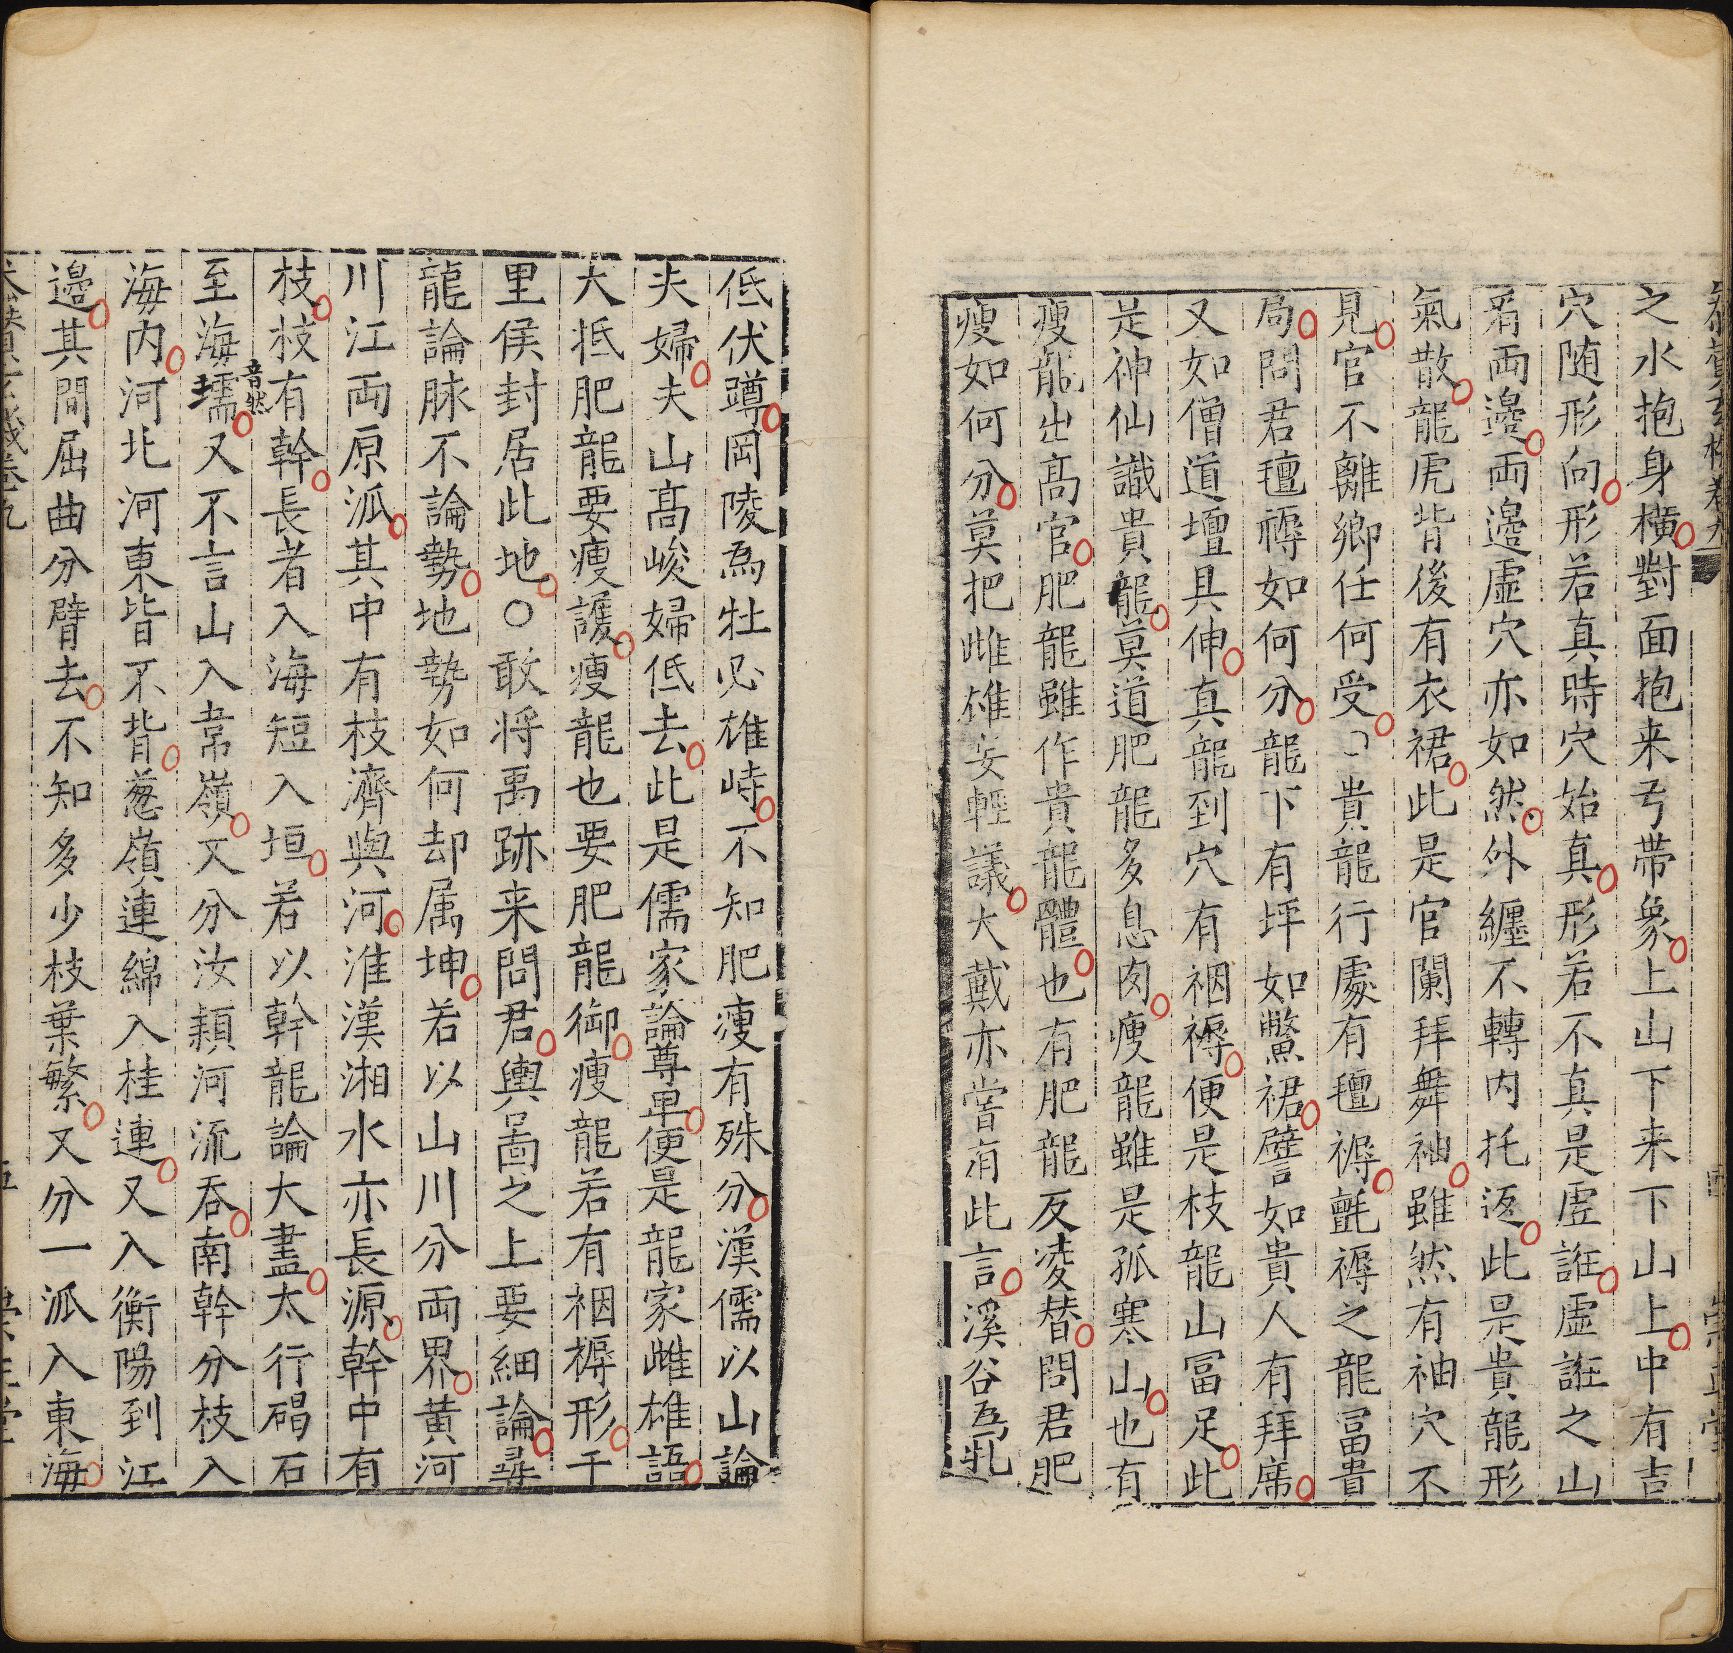 之水抱身橫對面抱来弓帶象上山下来下山上中有吉
穴随形向形若真時穴始真形若不真是虛誑虛誑之山
看両邊両邊虛穴亦如然外纏不轉内托返此是貴龍形
氣散龍虎背後有衣裙此是官闌拜舞袖雖然有袖穴不
見官不離鄉任何受貴龍行處有氊褥氊褥之龍冨貴
局問君氊褥如何分龍下有坪如鱉裙譬如貴人有拜席
又如僧道壇具伸真龍到穴有裀褥便是枝龍山冨足此
是神仙識貴龍莫道肥龍多息肉瘦龍雖是孤寒山也有
瘦龍出高官肥龍雖作貴龍體也有肥龍反凌替問君肥
瘦如何分莫把雌雄妄輕議大戴亦嘗有此言溪谷為牝
低伏蹲岡陵為牡必雄峙不知肥瘦有殊分漢儒以山論
夫婦夫山髙峻婦低去此是儒家論尊卑便是龍家雌雄語
大抵肥龍要瘦護瘦龍也要肥龍御瘦龍若有裀褥形千
里侯封居此地○敢将禹跡来問君輿啚之上要細論尋
龍論脉不論勢地勢如何却属坤若以山川分両界黄河
川江両原派其中有枝濟與河淮漢湘水亦長源幹中有
枝枝有幹長者入海短入垣若以幹龍論大盡太行碣石
至海壖音然又不言山入韋嶺又分汝頴河流吞南幹分枝入
海内河北河東皆不背葱嶺連綿入桂連又入衡陽到江
邊其間屈曲分臂去不知多少枝葉繁又分一派入東海